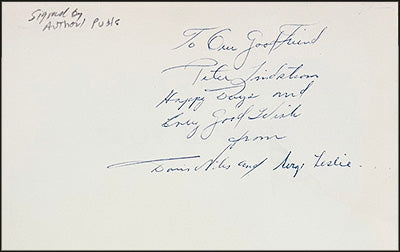 Signed by
Author & Publs
To Our Good Friend
Peter Lindstrom
Happy Days and
Every Good Wish
from
Doris Niles and Serge Leslie